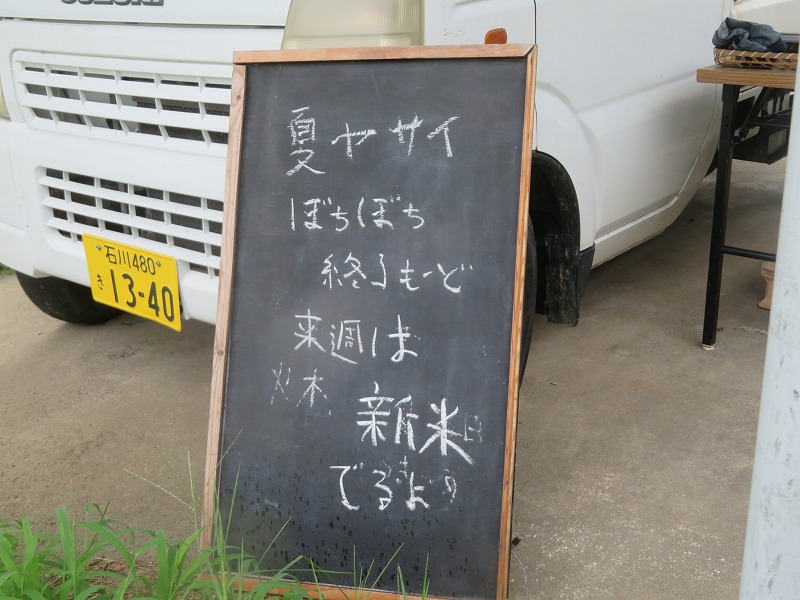 SUZUKI
夏ヤサイ
ぼちぼち
終了もーど
来週は
新米
でるよう
石川480
さ 13-40